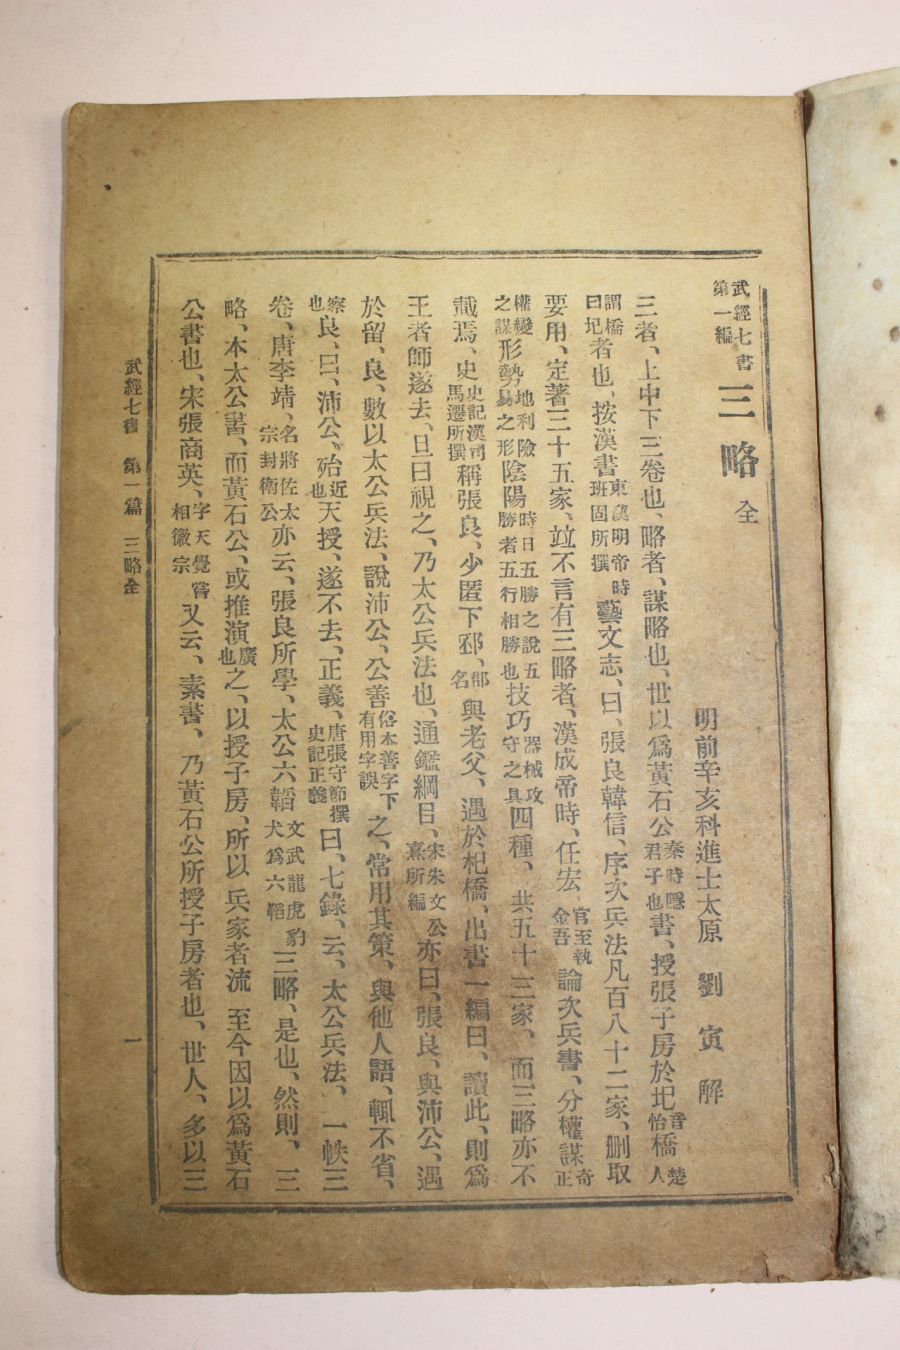 武經七書第一編 三略 全
明前辛亥科進士太原 劉寅 解
三者、上中下三卷也、略者、謀略也、世以爲黃石公秦時隱君子也書、授張子房於圯音怡橋楚人
謂橋曰圯者也、按漢書東漢明帝時班固所撰藝文志、曰、張良韓信、序次兵法凡百八十二家、删取
要用、定著三十五家、竝不言有三略者、漢成帝時、任宏官至執金吾論次兵書、分權謀奇正
權變之謀形勢地利險易之形陰陽時日五勝之說五勝者五行相勝也技巧器械攻守之具四種、共五十三家、而三略亦不
載焉、史史記漢司馬遷所撰稱張良、少匿下邳、郡名與老父、遇於杞橋、出書一編曰、讀此、則爲
王者師遂去、旦日視之、乃太公兵法也、通鑑綱目、宋朱文公熹所編亦曰、張良、與沛公、遇
於留、良、數以太公兵法、說沛公、公善俗本善字下有用字誤之、常用其策、與他人語、輒不省、
察也良、曰、沛公、殆近也天授、遂不去、正義、唐張守節撰史記正義曰、七錄、云、太公兵法、一帙三
卷、唐李靖、名將佐太宗封衛公亦云、張良所學、太公六韜文武龍虎豹犬爲六韜三略、是也、然則、三
略、本太公書、而黃石公、或推演廣也之、以授子房、所以兵家者流至今因以爲黃石
公書也、宋張商英、字天覺嘗相徽宗又云、素書、乃黃石公所授子房者也、世人、多以三
武經七書 第一篇 三略全 一